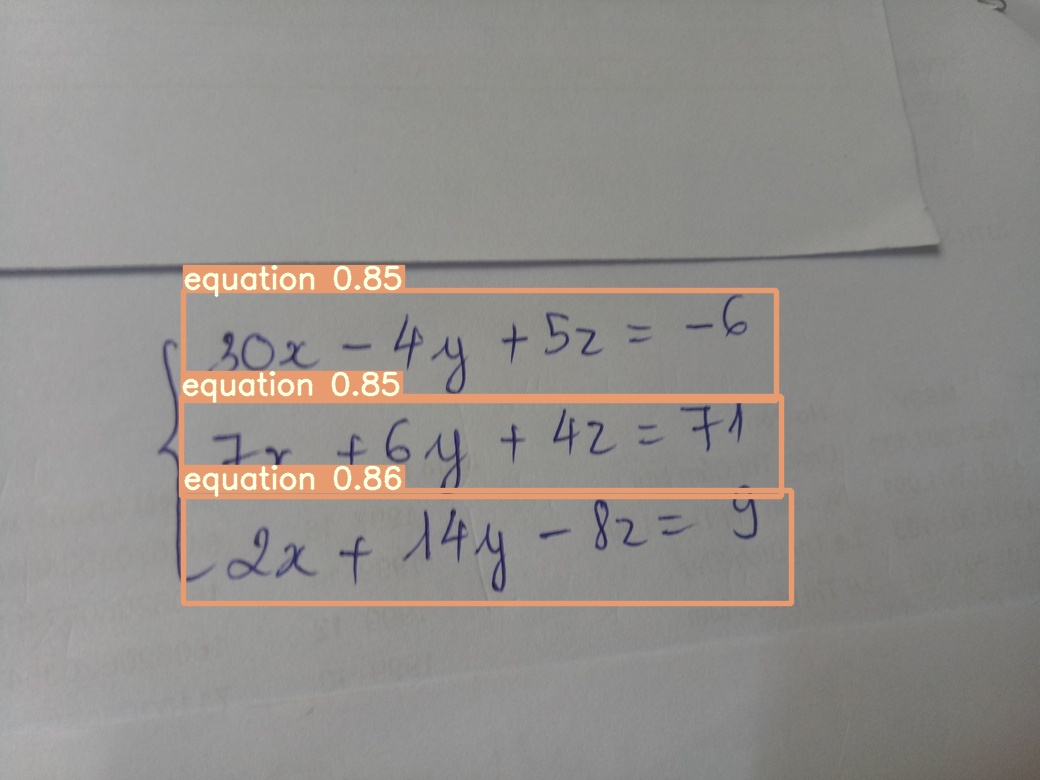 equation 0.85
30x - 4y + 5z = -6
equation 0.85
7x + 6y + 4z = 71
equation 0.86
2x + 14y - 8z = 9